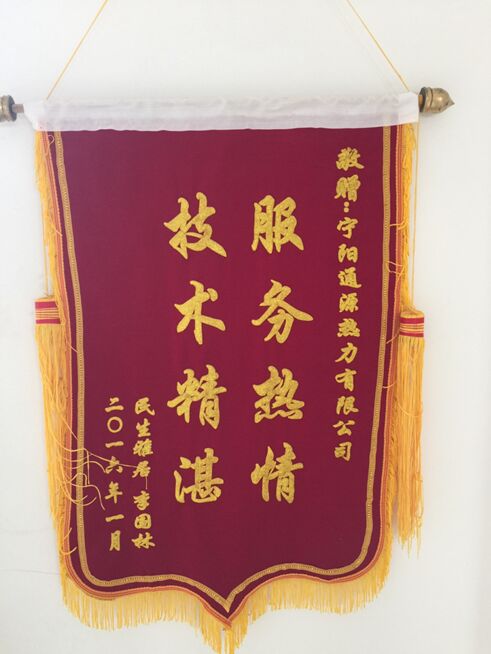 敬赠:宁阳通源热力有限公司
服务热情
技术精湛
民生雅居 李国林
二〇一六年一月